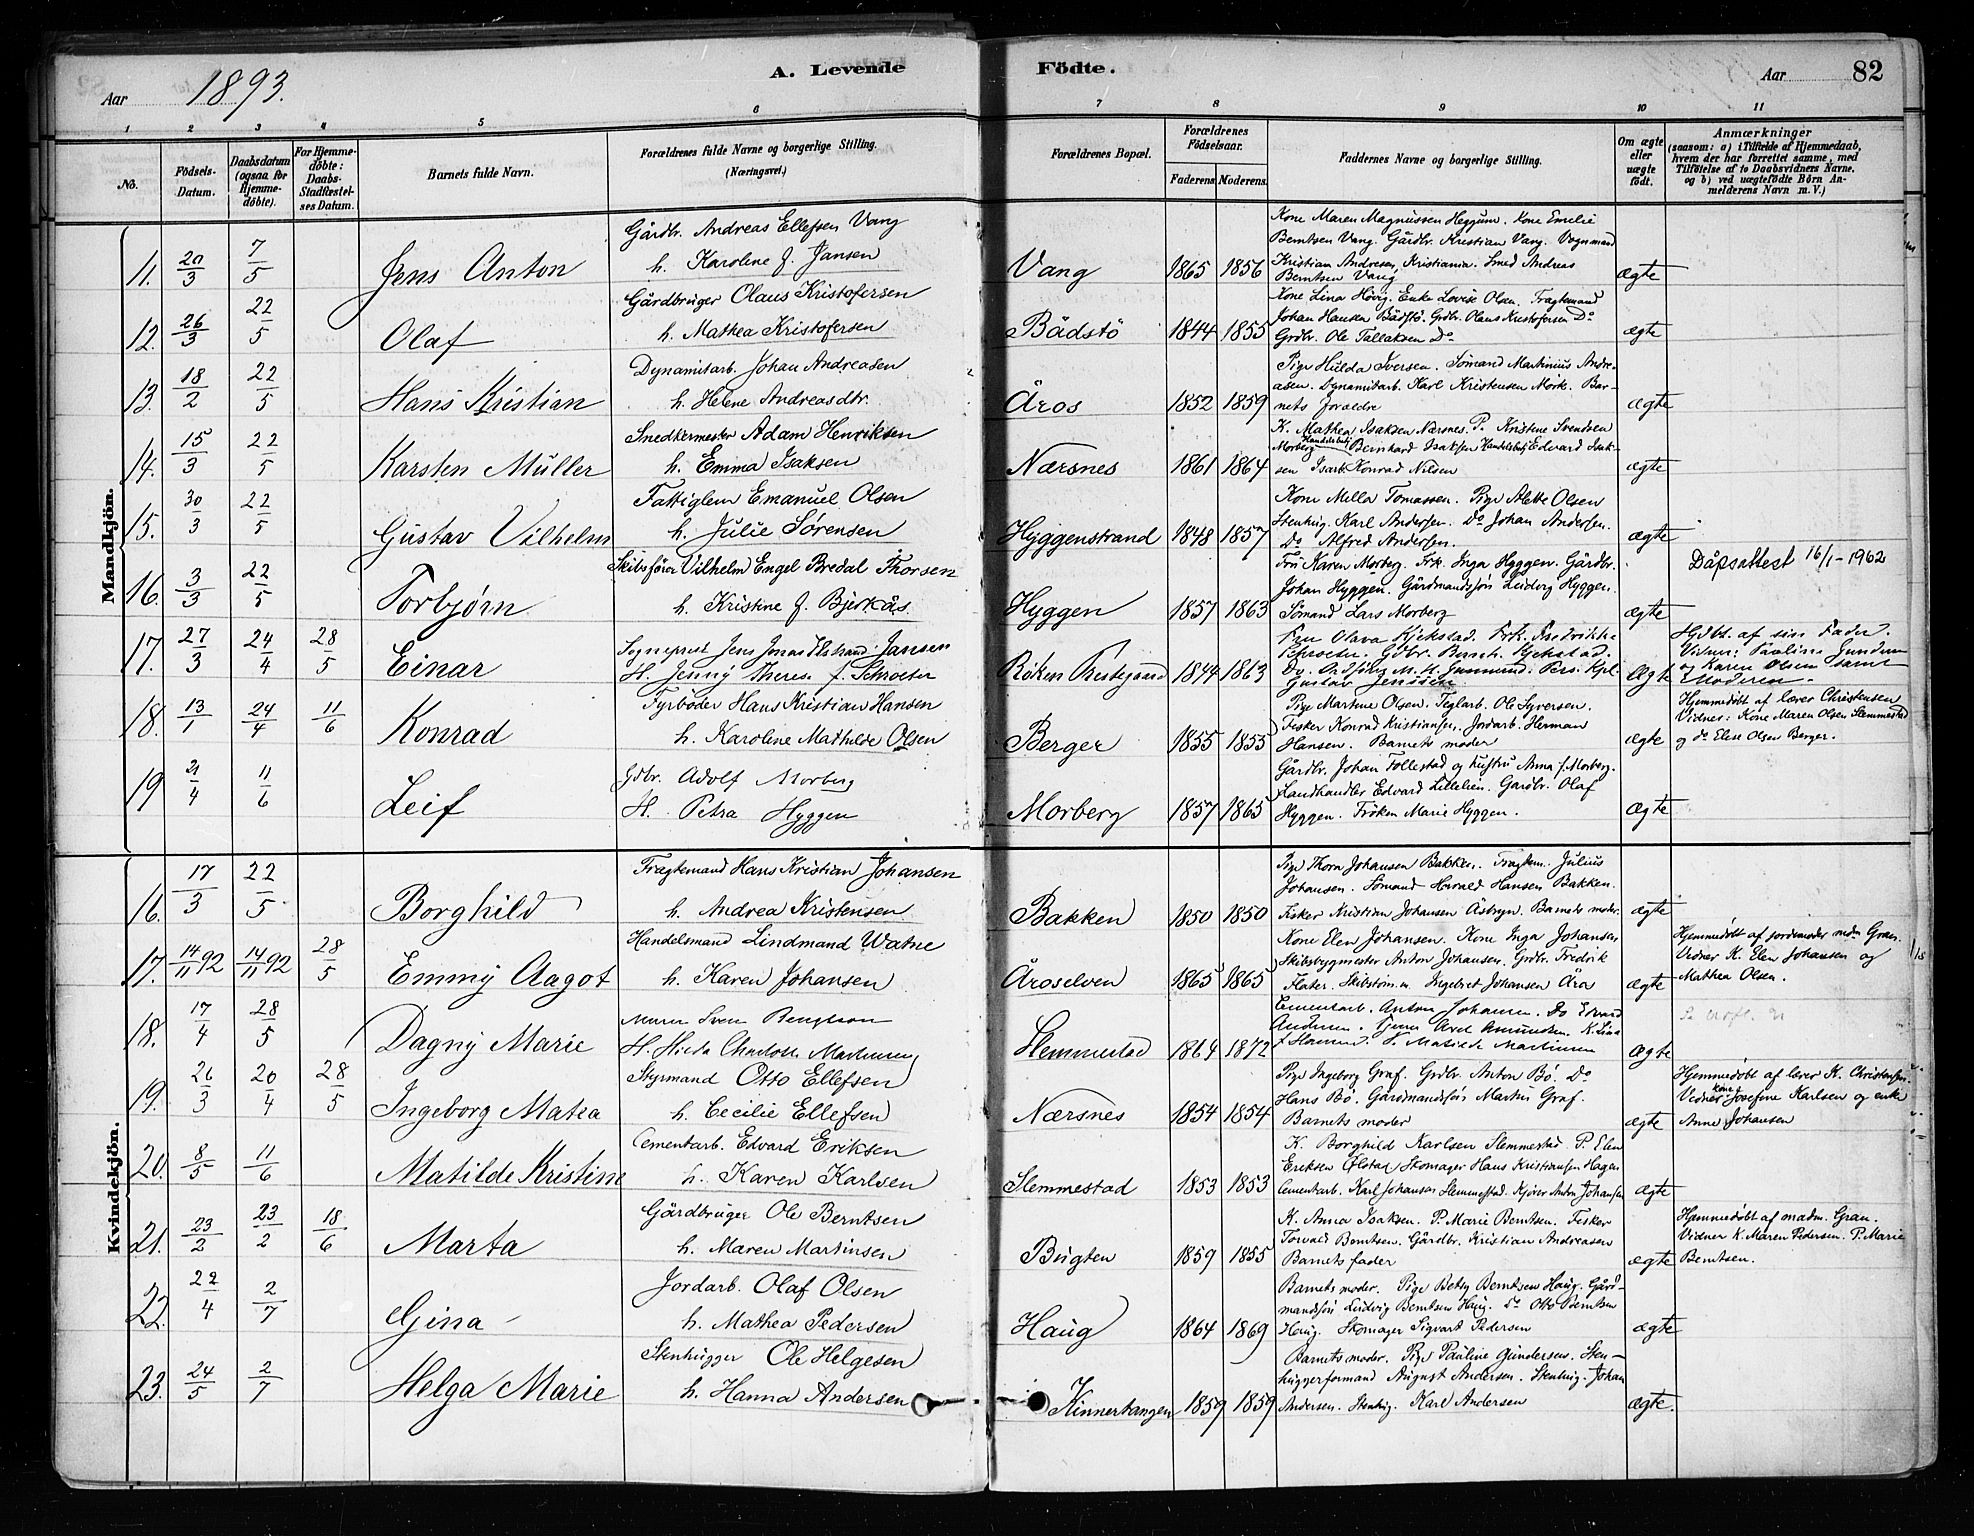 Aar 1893.
A. Levende
Födte.
Aar 82
1 2 3 4 5 6 7 8 9 10 11
No.
Födsels-Datum.
Daabsdatum (ogsaa for Hjemmedöbte).
For Hjemmedöbte: Daabs-Stadfæstelses Datum.
Barnets fulde Navn.
Forældrenes fulde Navne og borgerlige Stilling. (Næringsvei.)
Forældrenes Bopæl.
Forældrenes Födselsaar.
Faderens. Moderens.
Faddernes Navne og borgerlige Stilling.
Om ægte eller uægte födt.
Anmærkninger (saasom: a) i Tilfælde af Hjemmedaab, hvem der har forrettet samme, med Tilföielse af to Daabsvidners Navne, og b) ved uægtefödte Börn Anmelderens Navn m. V.)
Mandkjön.
11. 20/3 7/5 Jens Anton
Gårdbr. Andreas Ellefsen Vang
h. Karoline f. Jansen
Vang 1865 1856
Kone Maren Magnussen Heggum. Kone Emelie
Berntsen Vang. Gårdbr. Kristian Vang. Vognmand
Kristian Andresen, Kristiania. Smed Andreas
Berntsen Vang
ægte
12. 26/3 22/5 Olaf
Gårdbruger Olaus Kristofersen
h. Mathea Kristofersen
Bådstö 1844 1855
Kone Lina Hövig. Enke Lovise Olsen. Fragtemand
Johan Hansen Bådstö. Grdbr. Olaus Kristofersen Do
Grdbr. Ole Tallaksen Do
ægte
13. 18/2 22/5 Hans Kristian
Dynamitarb. Johan Andreasen
h. Helene Andreasdtr.
Åros 1852 1859
Pige Hulda Iversen. Sömand Martinius Andre-
asen. Dynamitarb. Karl Kristensen Mörk. Bar-
nets forældre
ægte
14. 15/3 22/5 Karsten Müller
Snedkermester Adam Henriksen
h. Emma Isaksen
Nærsnes 1861 1864
K. Mathea Isaksen Nærsnes. P. Kristine Svendsen
Morberg Handelsbetj. Bernhard Isaksen Handelsbetj. Edvard Isak-
sen Isarb. Konrad Nilsen
ægte
15. 30/3 22/5 Gustav Vilhelm
Fattiglem Emanuel Olsen
h. Julie Sørensen
Hyggenstrand 1848 1857
Kone Milla Tomassen. Pige Alette Olsen
Stenhug. Karl Andersen. Do Johan Andersen.
Do Alfred Andersen.
ægte
16. 3/3 22/5 Torbjørn
Skibsfører Vilhelm Engel Bredal Thorsen
h. Kristine f. Bjerkås
Hyggen 1857 1863
Fru Karen Morberg. Frk. Inga Hyggen. Gårdbr.
Johan Hyggen. Gårdmandssön Ludvig Hyggen.
Sömand Lars Morberg
ægte
Dåpsattest 16/1-1962
17. 27/3 24/4 28/5 Einar
Sogneprest Jens Jonas Elstrand Jansen
H. Jenny Therese f. Schroeter
Röken Prestegaard 1844 1863
Fru Olava Kjekstad. Frk. Fredrikke
Schroeter. Gdbr. Bernh. Kjekstad.
Gustav Jenssen
Ægte
Hjdbt. af sin Fader.
Vidner: Pauline Gundersen
og Karen Olsen samt
Moderen.
18. 13/1 24/4 11/6 Konrad
Fyrböder Hans Kristian Hansen
h. Karoline Mathilde Olsen
Berger 1855 1855
Pige Martine Olsen. Teglarb. Ole Syversen.
Fisker Konrad Kristiansen. Jordarb. Herman
Hansen. Barnets moder
ægte
Hjemmedöbt af lærer Christensen
Vidner: Kone Maren Olsen Slemmestad
og do Elise Olsen Berger.
19 21/4 11/6 Leif
Gdbr. Adolf Morberg
H. Petra Hyggen
Morberg 1857 1865
Gårdbr. Johan Follestad og hustru Anna f. Morberg.
Landhandler Edvard Lillelien. Gardbr. Olaf
Hyggen. Fröken Marie Hyggen.
Ægte
Kvindekjön.
16. 17/3 22/5 Borghild
Fragtemand Hans Kristian Johansen
h. Andrea Kristensen
Bakken 1850 1850
Pige Thora Johansen Bakken. Fragtem. Julius
Johansen. Sömand Harald Hansen Bakken.
Fisker Kristian Johansen Åstryn. Barnets moder.
ægte
17. 14/11 92 14/11 92 28/5 Emmy Aagot
Handelsmand Lindmand Watne
h. Karen Johansen
Åroselven 1865 1865
Kone Elen Johansen. Kone Inga Johansen
Skibsbygmester Anton Johansen. Grdbr. Fredrik
Flater. Skibstöm.m. Ingebret Johansen Åros
ægte
Hjemmedöbt af jordemoder mdm Gran.
Vidner K. Elen Johansen og
Mathea Olsen.
18. 17/4 28/5 Dagny Marie
Murer Sven Bengtson
H. Hilda Charlotte Martinsen
Slemmestad 1864 1872
Cementarb. Anton Johansen. Do Edvard
Andersen. Tjener Axel Amundsen. K. Lina
Hansen. Matilde Martinsen
Ægte
19. 26/3 20/4 28/5 Ingeborg Matea
Styrmand Otto Ellefsen
h. Cecilie Ellefsen
Nærsnes 1854 1854
Pige Ingeborg Graf. Grdbr. Anton Bö. Do
Hans Bö. Gårdmandssön Martin Graf.
Barnets moder
ægte
Hjemmedöbt af lærer K. Christensen.
Vidner kone Josefine Karlsen og enke
Anne Johansen
20. 8/5 11/6 Matilde Kristine
Cementarb. Edvard Eriksen
h. Karen Karlsen
Slemmestad 1853 1853
K. Borghild Karlsen Slemmestad. P. Elen
Eriksen Ølstad Skomager Hans Kristiansen Hagen
Cementarb. Karl Johansen Slemmestad. Kjörer Anton Johansen
ægte
21. 23/2 23/2 18/6 Marta
Gårdbruger Ole Berntsen
h. Maren Martinsen
Bugten 1859 1855
K. Anna Isaksen. P. Marie Berntsen. Fisker
Torvald Berntsen. Gårdbr. Kristian Andreasen
Barnets fader
ægte
Hjemmedöbt af madm. Gran.
Vidner K. Maren Pedersen. P. Marie
Berntsen.
22. 22/4 2/7 Gina
Jordarb. Olaf Olsen
h. Mathea Pedersen
Haug 1864 1869
Barnets moder. Pige Betsy Berntsen Haug. Gård-
mandssön Ludvig Berntsen Haug. Do Otto Berntsen
Haug. Skomager Sigvart Pedersen
ægte
23. 24/5 2/7 Helga Marie
Stenhugger Ole Helgesen
h. Hanna Andersen
Kinnertangen 1859 1859
Barnets moder. Pige Pauline Gundersen. Sten-
huggerformand August Andersen. Stenhug. Johan
Andersen. Stenhug. Karl Andersen
ægte.